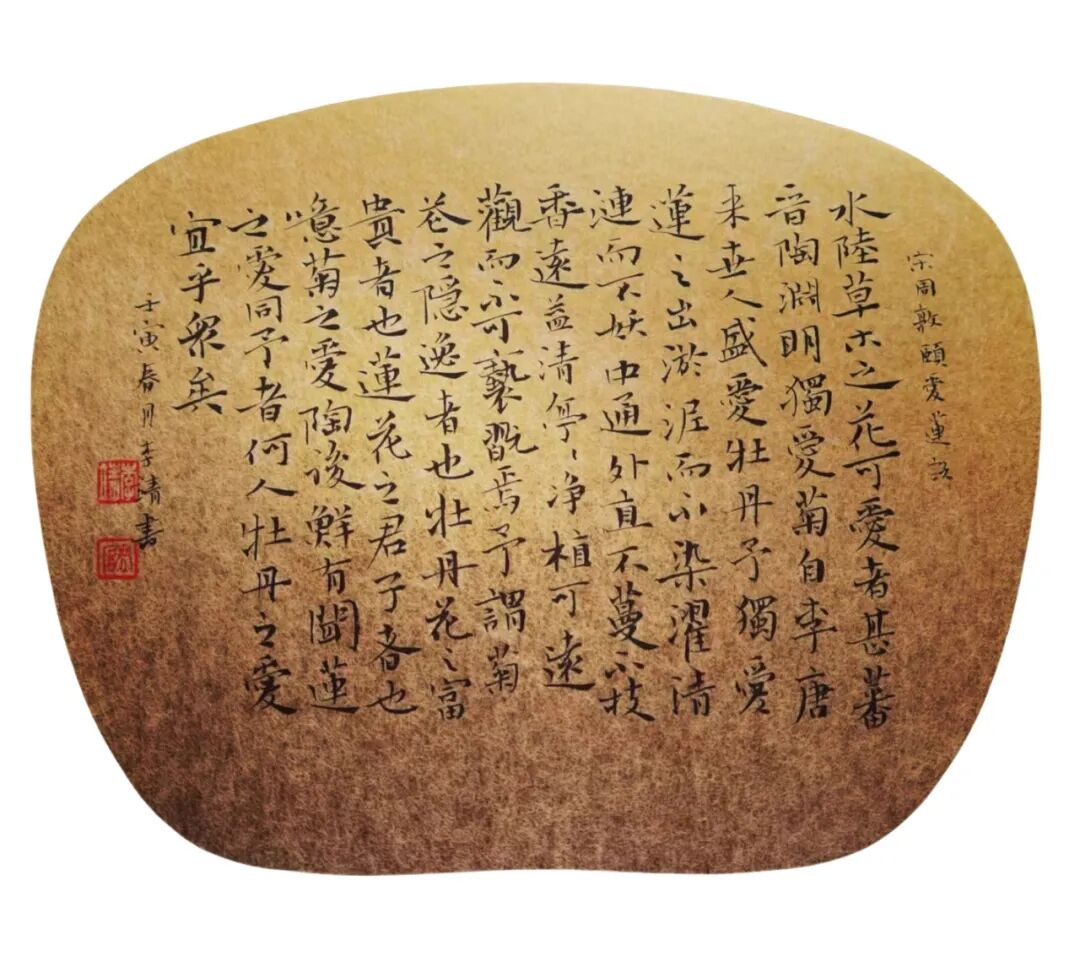 宋周敦頤愛蓮説
水陸草木之花可愛者甚蕃
晉陶淵明獨愛菊自李唐
来世人盛愛牡丹予獨愛
蓮之出淤泥而不染濯清
漣而不妖中通外直不蔓不枝
香遠益清亭〻净植可遠
觀而不可褻翫焉予謂菊
花之隱逸者也牡丹花之富
貴者也蓮花之君子者也
噫菊之愛陶後鮮有聞蓮
之愛同予者何人牡丹之愛
宜乎衆矣
壬寅春月李清書